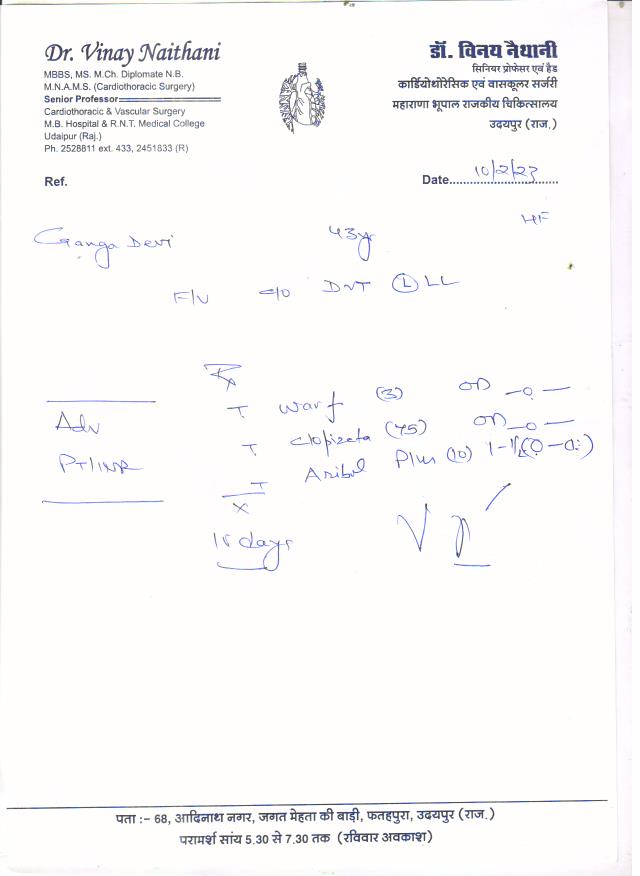 Dr. Vinay Naithani
MBBS, MS. M.Ch. Diplomate N.B.
M.N.A.M.S. (Cardiothoracic Surgery)
Senior Professor
Cardiothoracic & Vascular Surgery
M.B. Hospital & R.N.T. Medical College
Udaipur (Raj.)
Ph. 2528811 ext. 433, 2451833 (R)
डॉ. विनय नैथानी
सिनियर प्रोफेसर एवं हैड
कार्डियोथोरेसिक एवं वासकूलर सर्जरी
महाराणा भूपाल राजकीय चिकित्सालय
उदयपुर (राज.)
Ref.
Date 10/2/23
Ganga Devi 43yr
F/U c/o DVT Ⓛ LL
Rx
T Warf (3) OD
T (75) OD
T Plus (10)
Adv
PT/INR
x
days
पता :– 68, आदिनाथ नगर, जगत मेहता की बाड़ी, फतहपुरा, उदयपुर (राज.)
परामर्श सांय 5.30 से 7.30 तक (रविवार अवकाश)